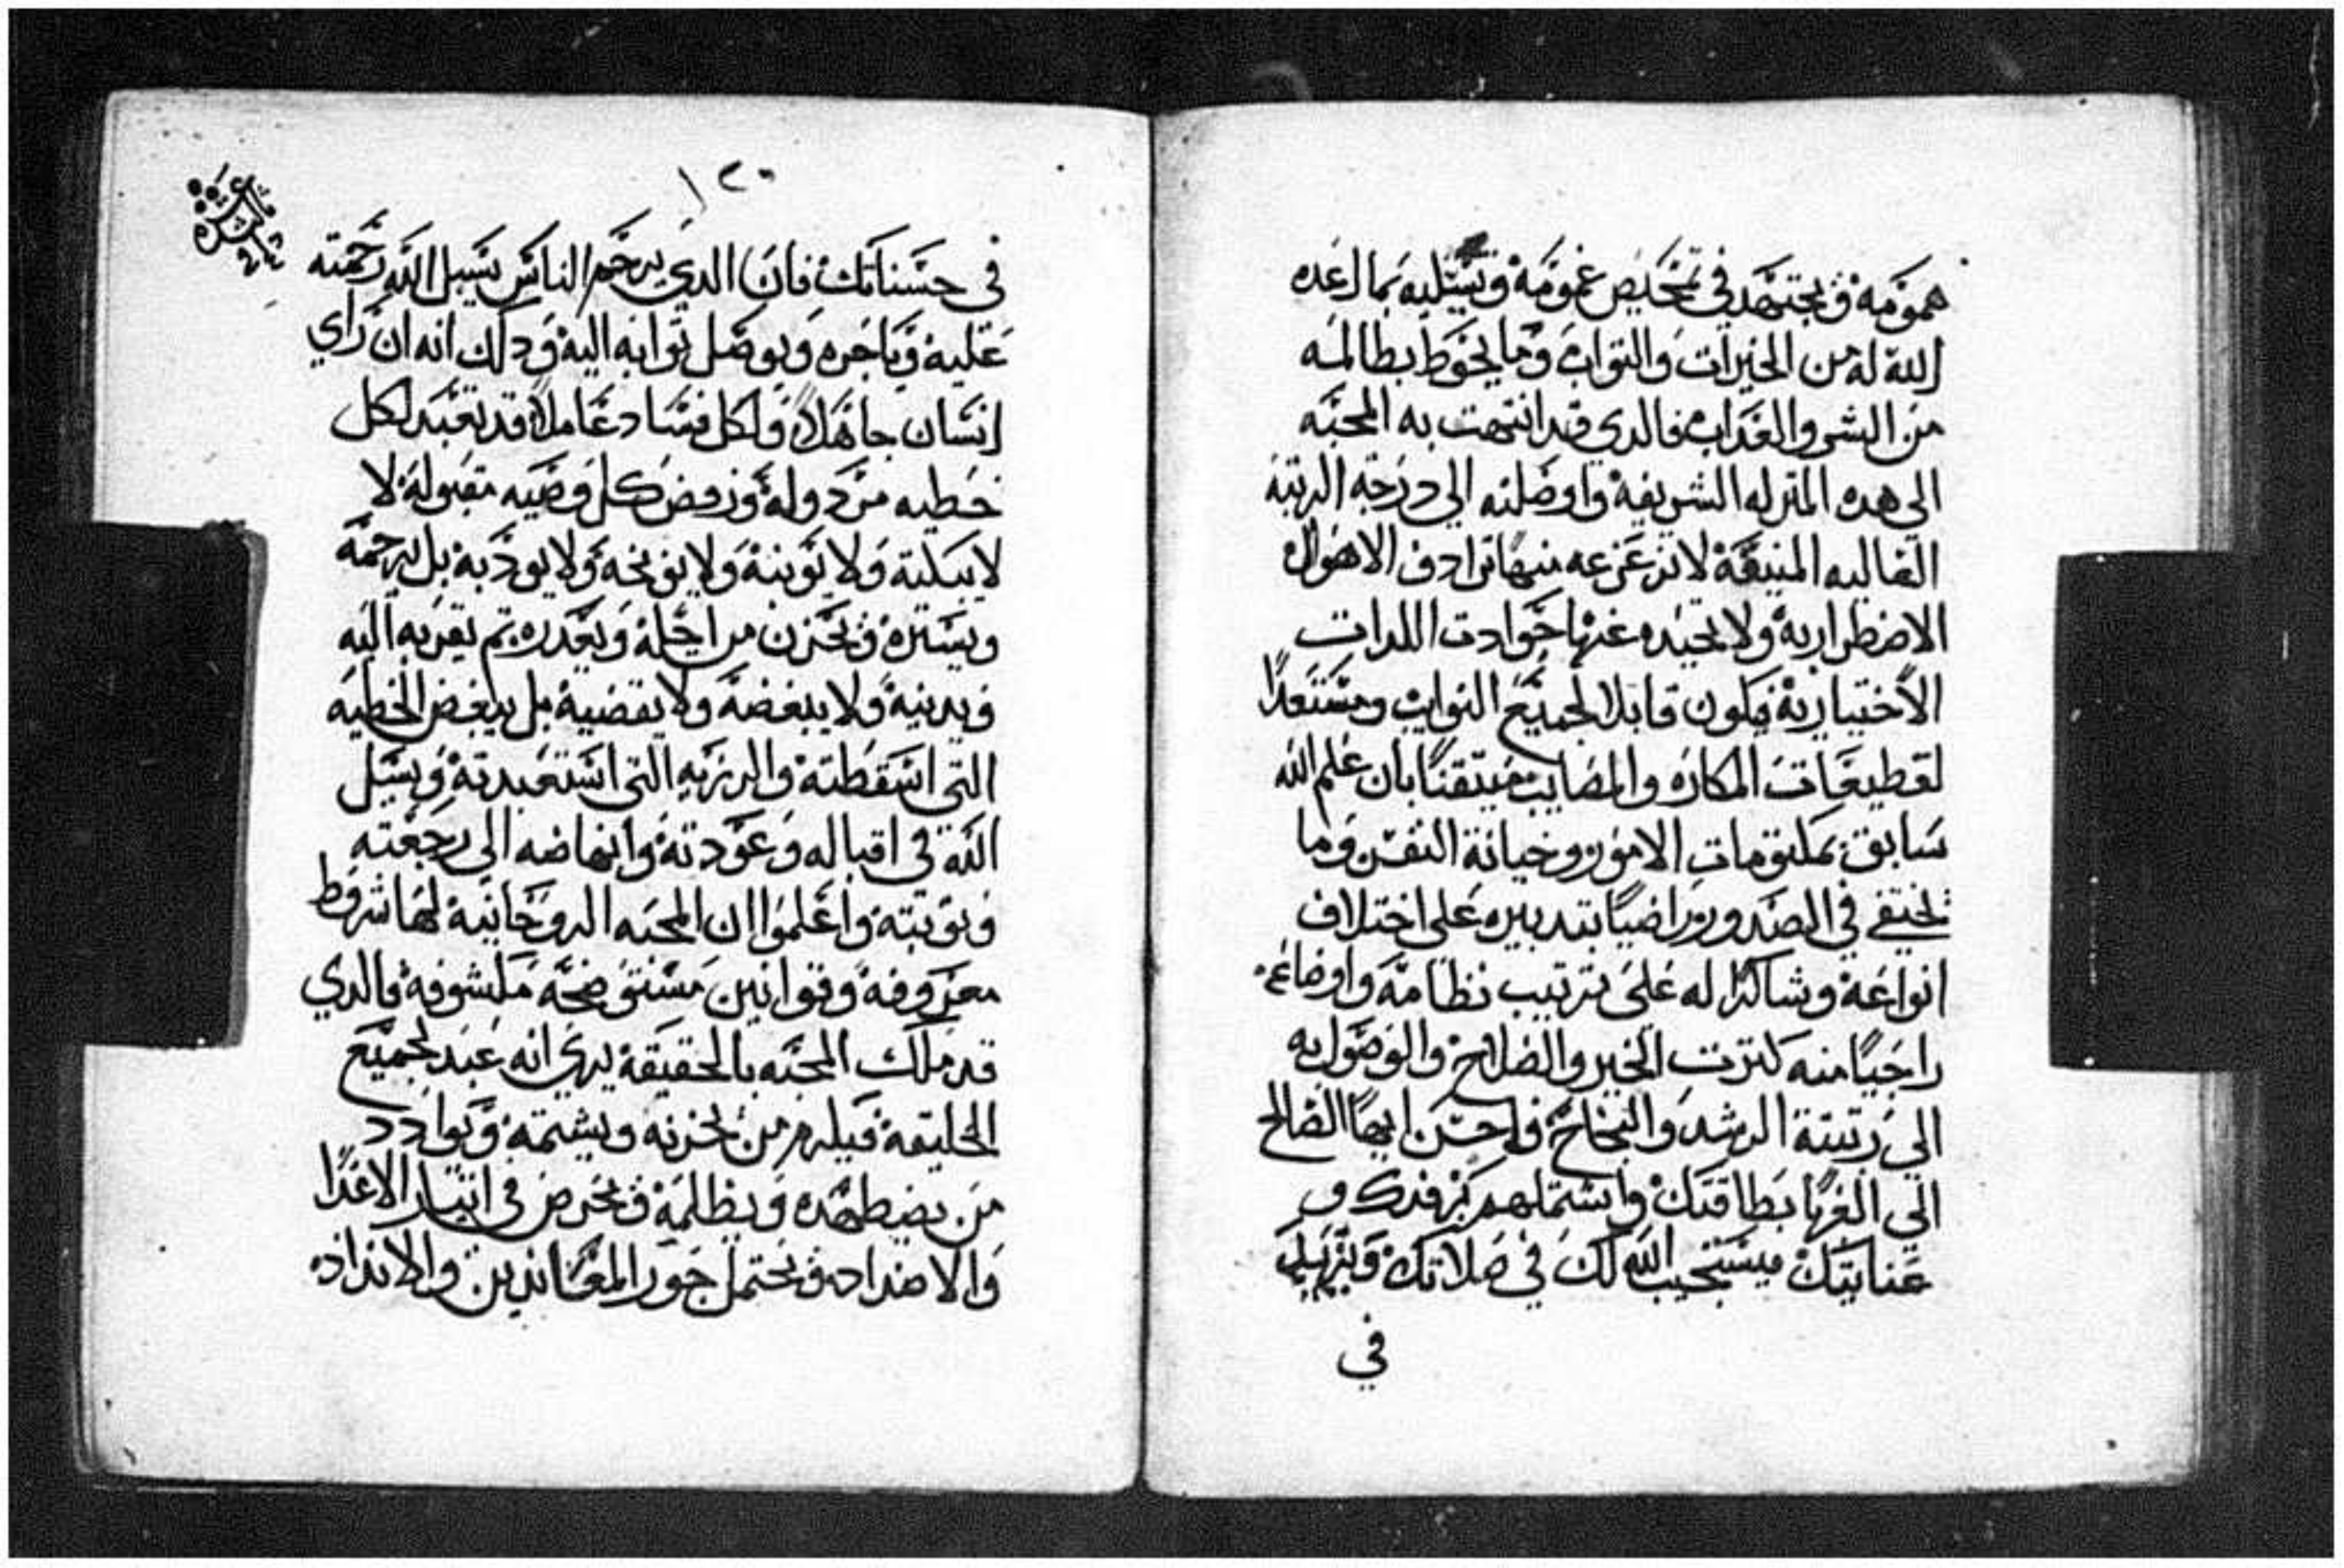 همومه ويجتهد في تمحيص غمومه ويسليه بما اعده
الله له من الخيرات والتواب وما يحوط بظالمه
من الشر والعداب فالدي قد انتهت به المحبه
الي هده المنزله الشريفة واوصلته الي درجة الرتبة
العاليه المنيفة لا تزعزعه عنها ترادف الاهوال
الاضطرارية ولا تحيده عنها حوادت اللدات
الاختيارية فيكون قابلا لجميع النوايب ومستعدًا
لقطيعات المكاره والمصايب متيقنًا بان علم الله
سابق بمكتومات الامور وخيانة النفس وما
تختفي في الصدور راضيًا بتدبيره على اختلاف
انواعة وشاكرًا له على ترتيب نظامة واوضاعه
راجيًا منه كترت الخير والصلاح والوصول به
الي رتبتة الرشد والنجاح واحسن ايها الصالح
الي الغربا بطاقتك واشملهم برفدك و
عنايتك فيستجيب الله لك في صلاتك ويزيد
في
١٢٠
في حسناتك فان الدي يرحم الناس يسبل الله رحمته
علية وياجره ويوصل توابه الية ودلك انه ان راي
انسان جاهلاً ولكل فساد عاملاً قد تعبد لكل
خطيه مردولة ورفض كل وصيه مقبولة لا
لا يبكتة ولا يونبة ولا يوبخه ولا يودبة بل يرحمه
ويستره ويحزن من اجلة ويعدره تم يقربه اليه
ويدنية ولا يبغضه ولا يقصية بل يبغض الخطيه
التي اسقطتة والرزيه التي استعبدتة ويسيل
الله في اقباله وعودتة وانهاضه الي رجعته
وتوبتة واعلموا ان المحبه الروحانية لها شروط
معروفة وقوانين مستوضحة مكشوفة فالدي
قد ملك المحبه بالحقيقة يري انه عبد لجميع
الخليقة فيكرم من يحزنه ويشتمة ويوادد
من يضطهده ويظلمة ويحرص في الاعدا
والاضداد ويحتمل جور المعاندين والانداد